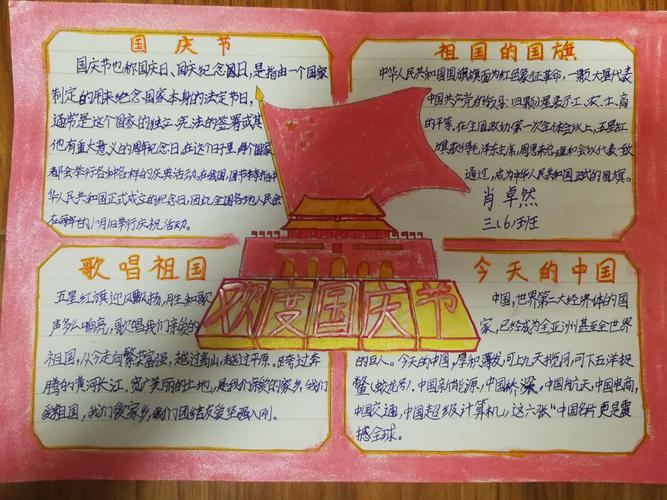 国庆节
国庆节也称国庆日、国庆纪念日,是指由一个国家
制定的用来纪念国家本身的法定节日,
通常是这个国家的独立、宪法的签署或其
他有重大意义的周年纪念日。在这个日子里,每个国家
都会举行各种各样的庆典活动。在我国,国节特指中
华人民共和国正式成立的纪念日,因此全国各地人民会
在每年的10月1日举行庆祝活动。
祖国的国旗
中华人民共和国国旗旗面为红色象征革命,一颗大星代表
中国共产党的领导,四颗小星表示工、农、士、商
的平等,在全国政协第一次全体会议上,五星红
旗获得毛泽东主席,周恩来总理和会议代表一致
通过,成为中华人民共和国正式的国旗。
肖卓然
三(6)班
歌唱祖国
五星红旗迎风飘扬,胜利歌
声多么响亮,歌唱我们亲爱的
祖国,从今走向繁荣富强,越过高山,越过平原。跨过奔
腾的黄河长江,宽广美丽的土地,是我们亲爱的家乡,我们
爱祖国,我们爱家乡,我们团结友爱坚强入刚。
欢度国庆节
今天的中国
中国,世界第二大经济体的国
家,已经成为全亚洲甚至全世界
的巨人。今天的中国,厚积薄发,可上九天揽月,可下五洋捉
鳖(蛟龙号)。中国新能源,中国桥梁,中国航天,中国电商,
中国交通,中国超级计算机,这六张“中国名片更是震
撼全球。